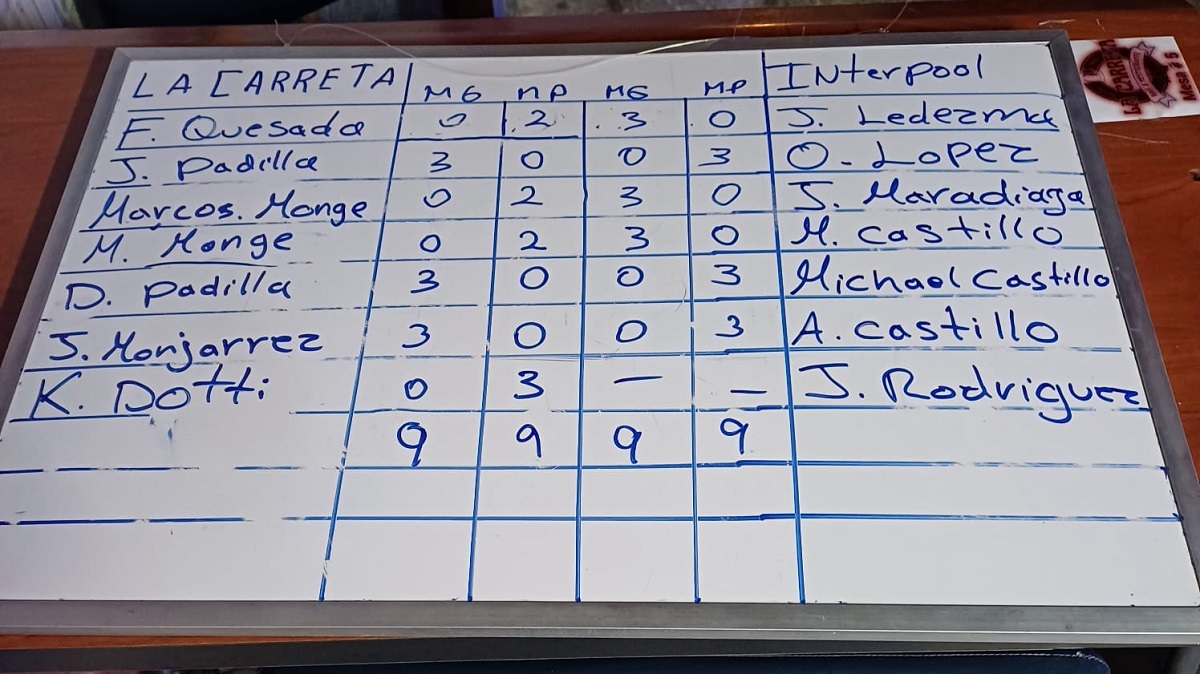 LA CARRETA MG MP MG MP INterpool
F. Quesada 0 2 3 0 J. Ledezma
J. Padilla 3 0 0 3 O. Lopez
Marcos. Monge 0 2 3 0 J. Maradiaga
M. Monge 0 2 3 0 M. Castillo
D. Padilla 3 0 0 3 Michael Castillo
J. Monjarrez 3 0 0 3 A. Castillo
K. Dotti 0 3 — — J. Rodriguez
9 9 9 9
LA CARRETA
Mesa # 5